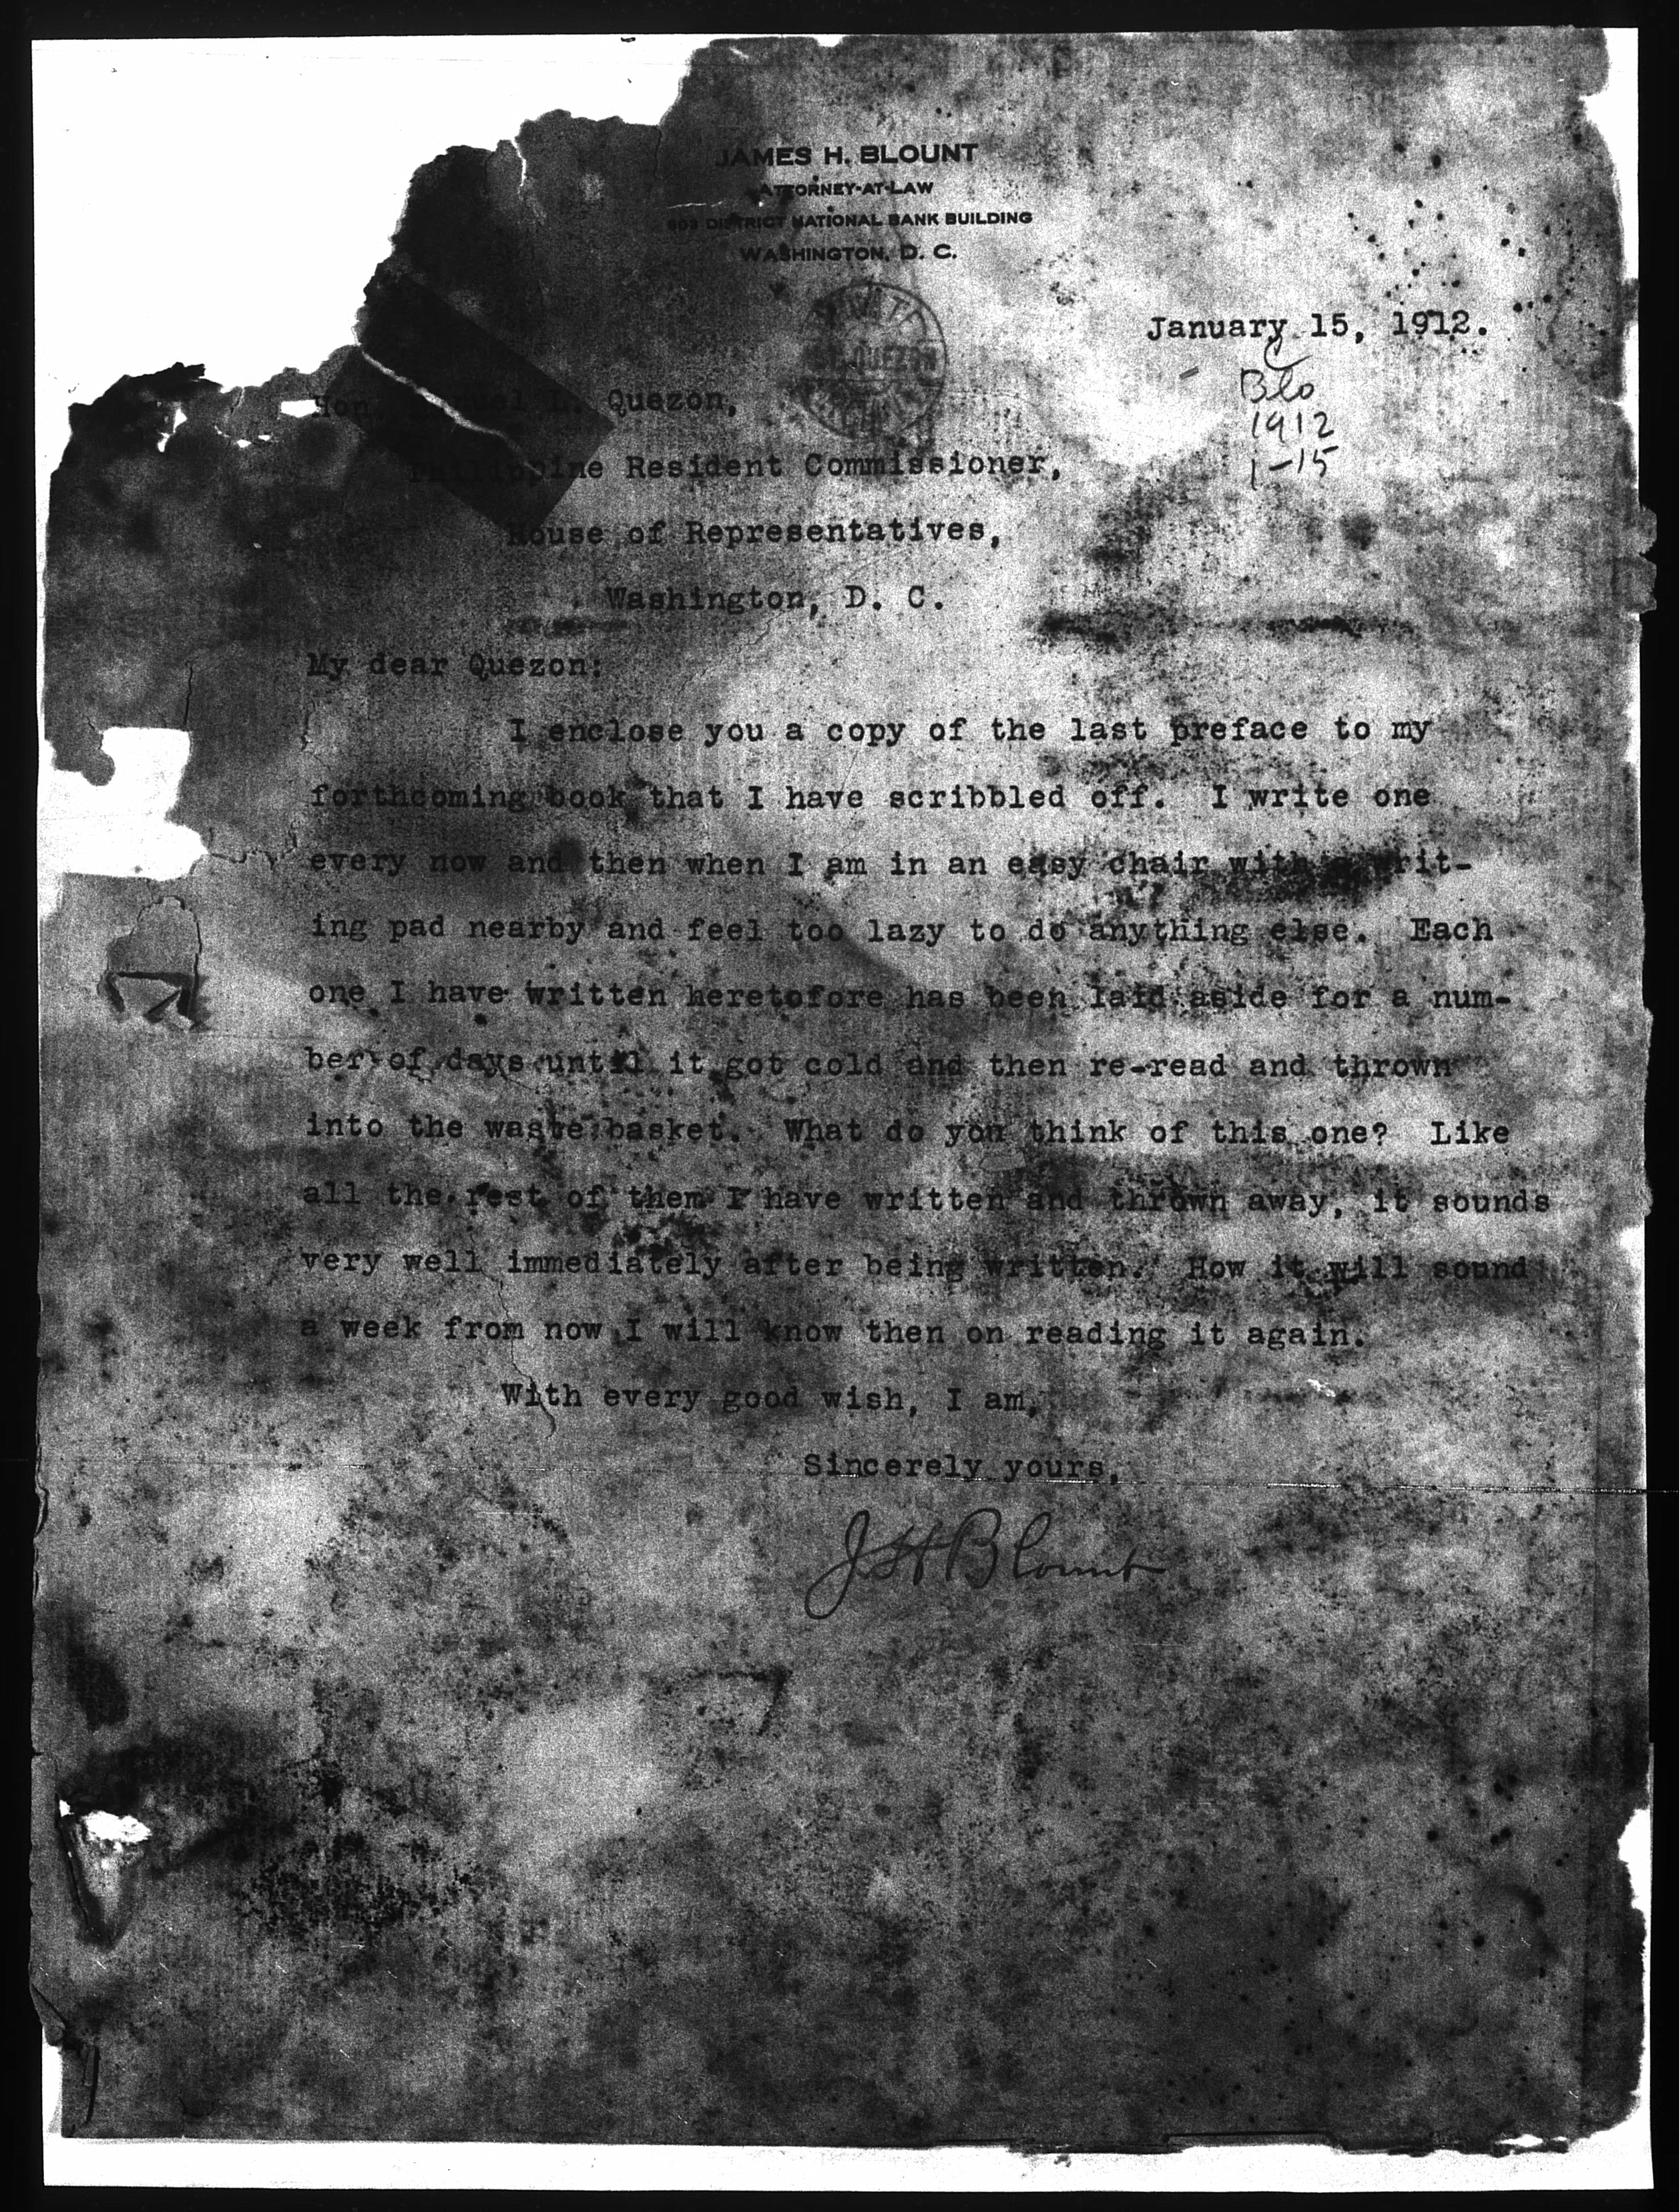 JAMES H. BLOUNT
ATTORNEY-AT-LAW
DISTRICT NATIONAL BANK BUILDING
WASHINGTON, D. C.
January 15, 1912.
Blo
1912
1-15
Hon. Quezon,
Philippine Resident Commissioner,
House of Representatives,
Washington, D. C.
My dear Quezon:
I enclose you a copy of the last preface to my
forthcoming book that I have scribbled off. I write one
every now and then when I am in an easy chair with a writ-
ing pad nearby and feel too lazy to do anything else. Each
one I have written heretofore has been laid aside for a num-
ber of days until it got cold and then re-read and thrown
into the waste basket. What do you think of this one? Like
all the rest of them I have written and thrown away, it sounds
very well immediately after being written. How it will sound
a week from now I will know then on reading it again.
With every good wish, I am,
Sincerely yours,
J H Blount